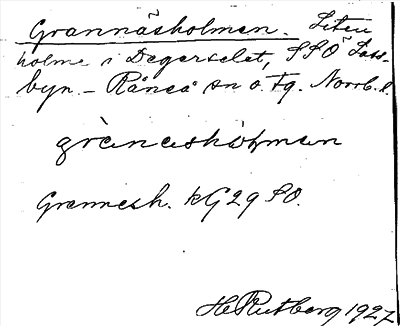 Grannäsholmen. Liten
holme i Degerselet, SSÖ Lass-
byn. – Råneå sn o. tg. Norrb. l.
gràneshòɫmen
Grannesh. kG 29 SO.
H. Rutberg 1927